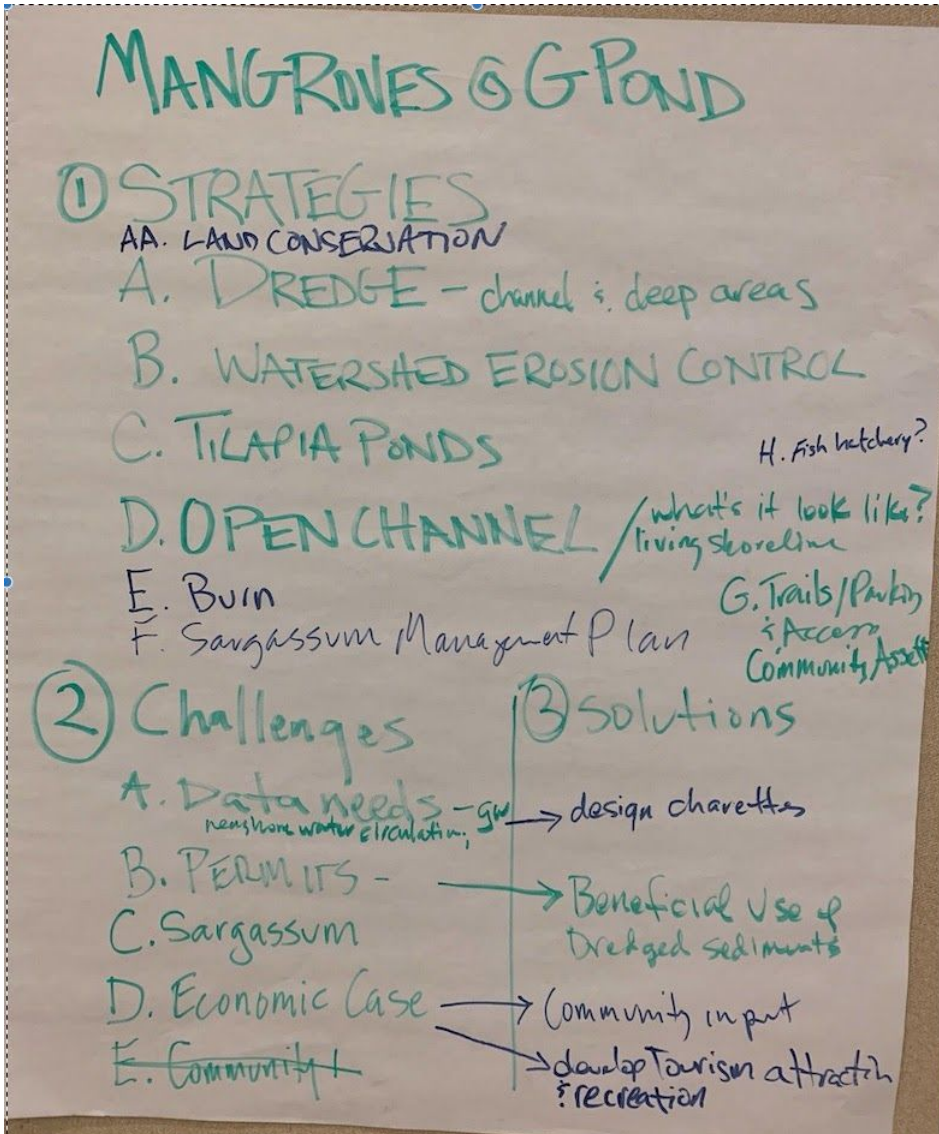 MANGROVES @ G POND
① STRATEGIES
AA. LAND CONSERVATION
A. DREDGE - channel & deep areas
B. WATERSHED EROSION CONTROL
C. TILAPIA PONDS
H. Fish hatchery?
D. OPEN CHANNEL / what's it look like?
living shoreline
E. Burn
G. Trails/Parking
& Access
Community Asset
F. Sargassum Management Plan
② Challenges
A. Data needs - gw
nearshore water circulation,
B. PERMITS -
C. Sargassum
D. Economic Case
E. Community +
③ Solutions
→ design charettes
→ Beneficial Use of
Dredged sediments
→ Community input
→ develop Tourism attractin
& recreation